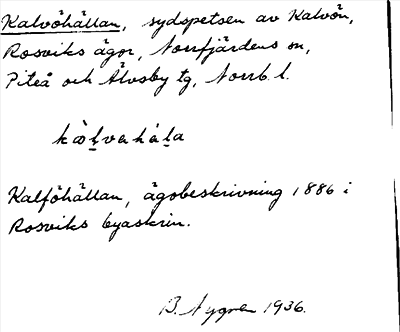 Kalvöhällan, sydspetsen av Kalvön,
Rosviks ägor, Norrfjärdens sn,
Piteå och Älvsby tg, Norrb. l.
Kalföhällan, ägobeskrivning 1886 i
Rosviks byaskrin.
B. Nygren 1936.